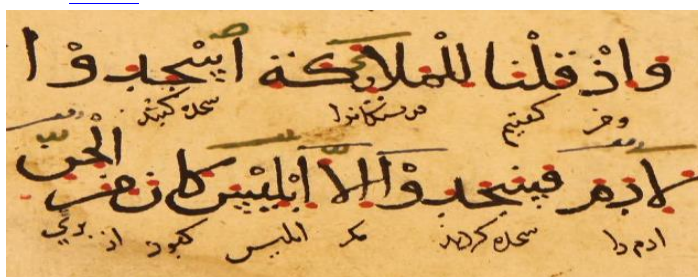 واذ قلنا للملايكة اسجدوا
وچن گفتیم فرشتگانرا سجده کنید
لادم فسجدوا الا ابليس كان من الجن
ادم را سجده کردند مگر ابلیس کبود از پری